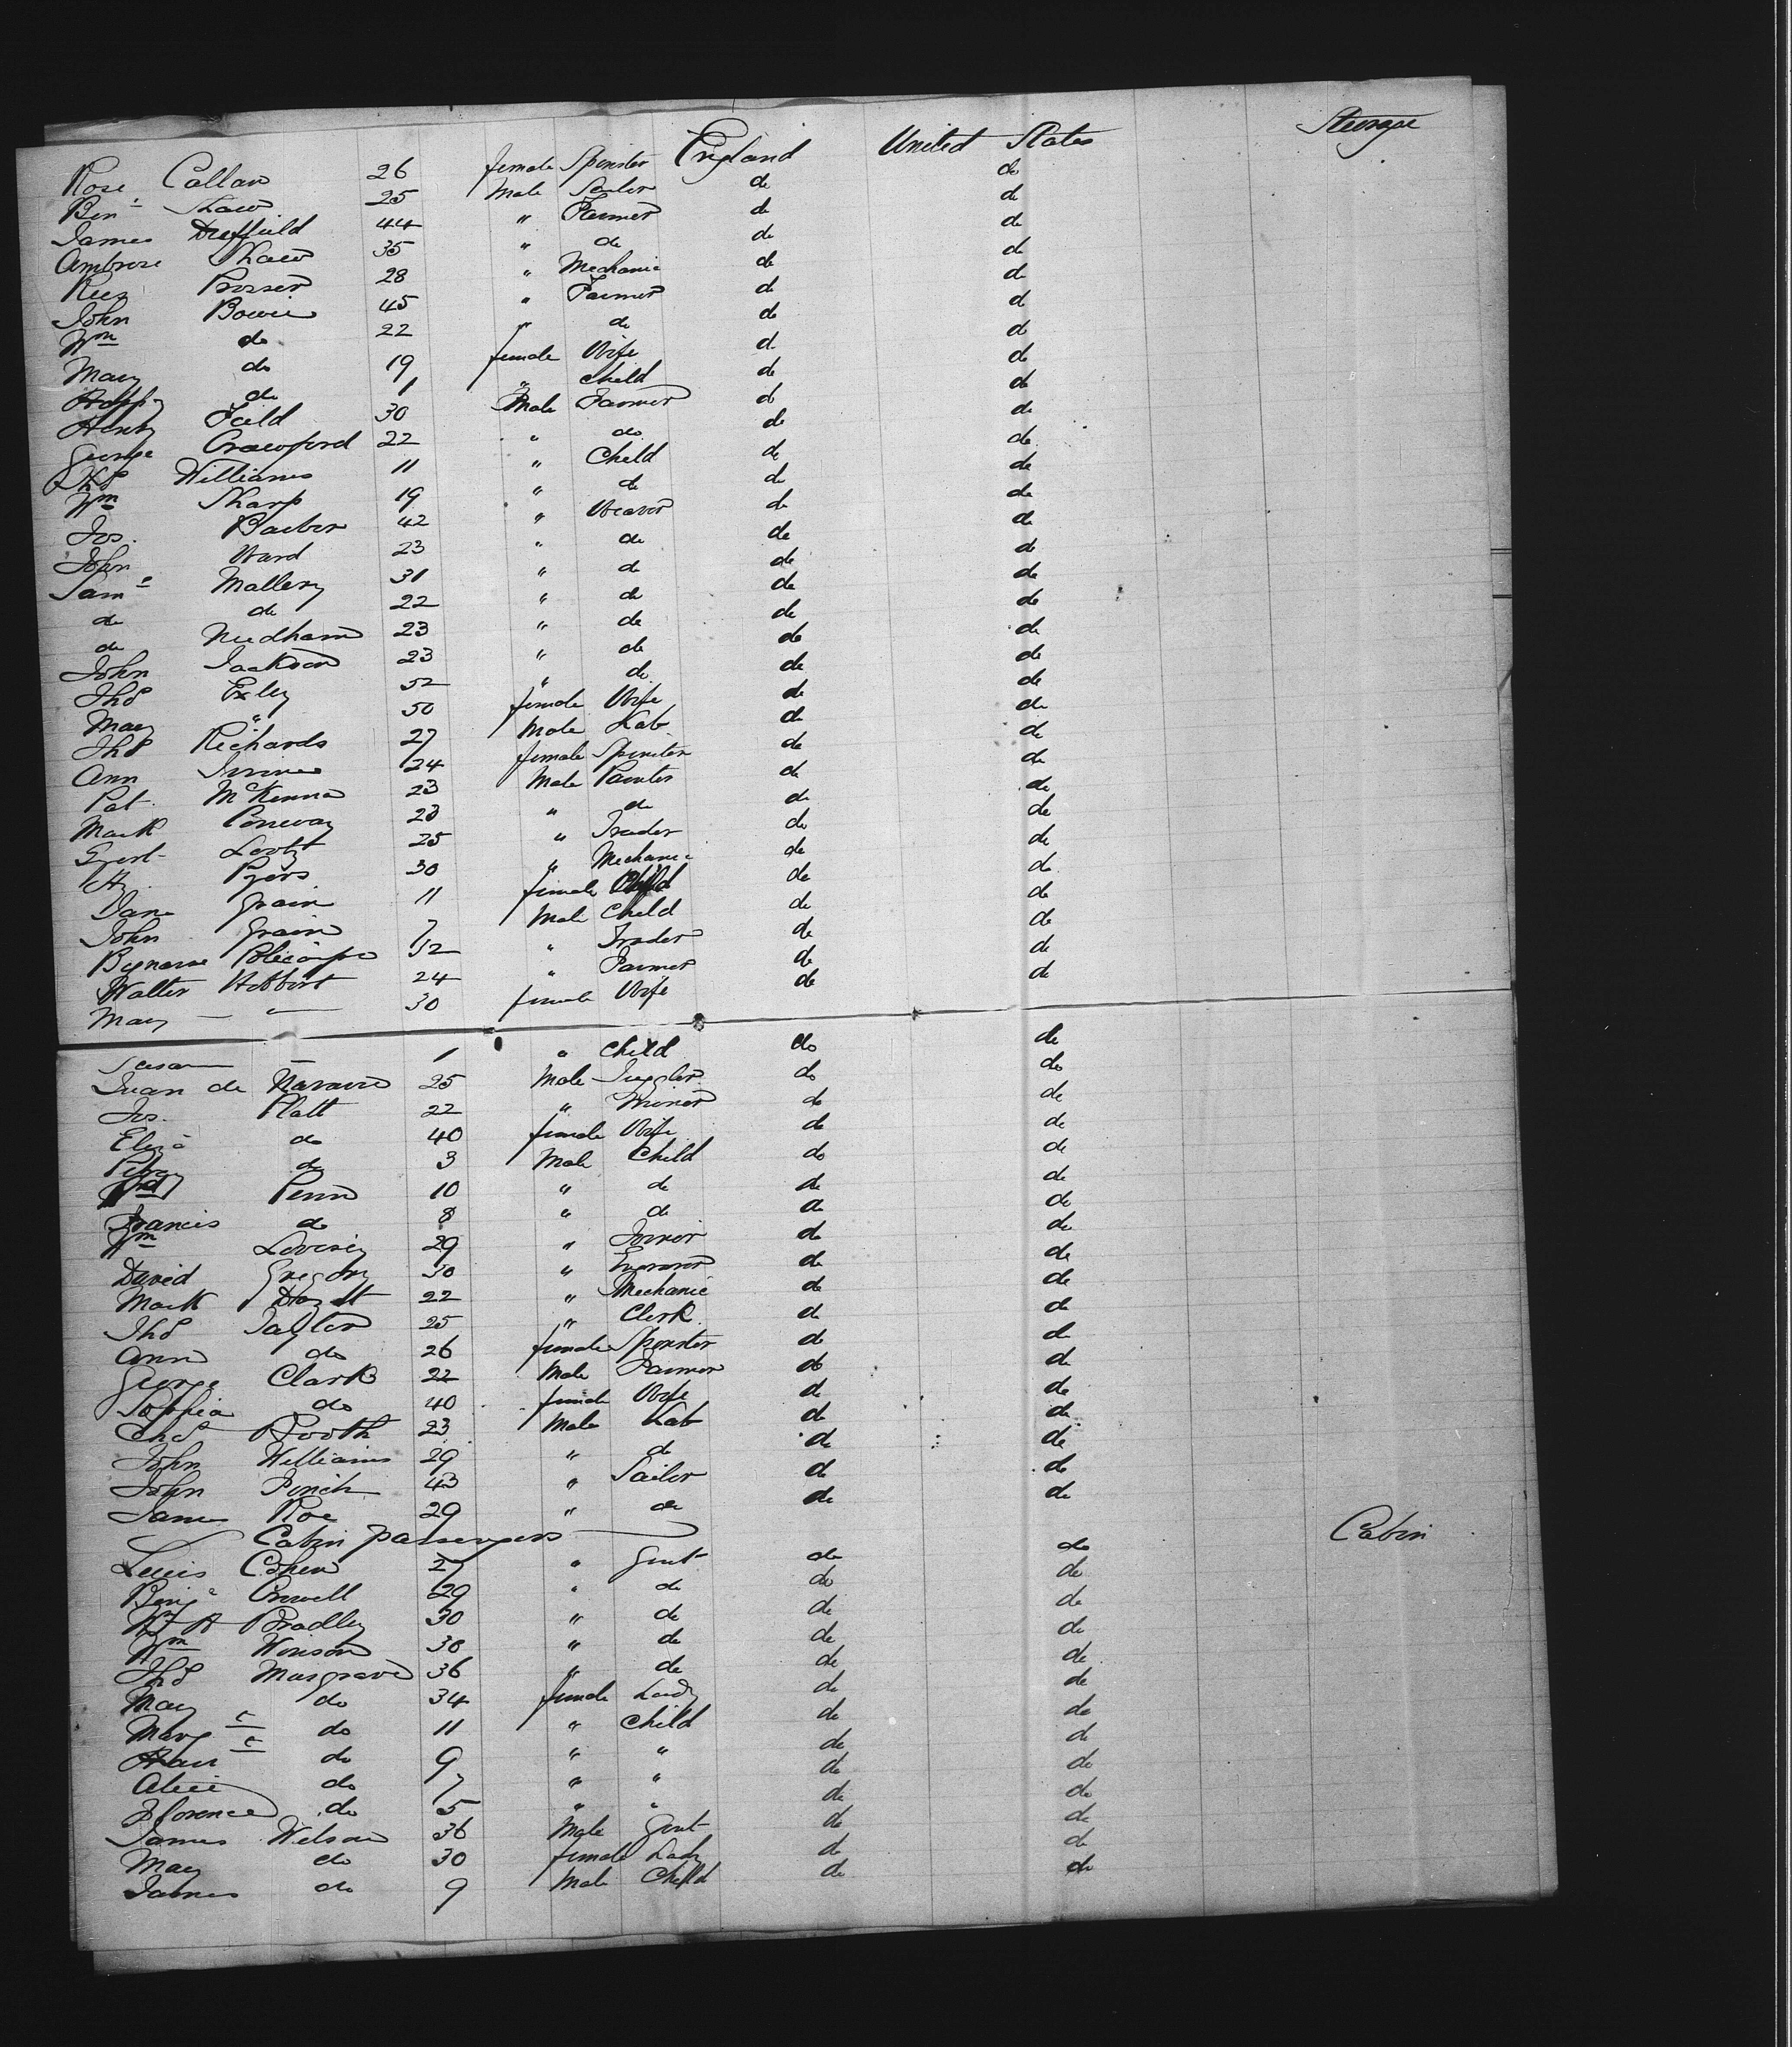 Rose Callan 26 female Spinster England United States Steerage
Ben Shaw 25 Male Sailor do do
James Duffield 44 " Farmer do do
Ambrose Shaw 35 " do do do
Rees Prosser 28 " Mechanic do do
John Bowie 45 " Farmer do do
Wm do 22 " do do do
Mary do 19 female Wife do do
do 1 " Child do do
Henry Feild 30 Male Farmer do do
George Crawford 22 " do do do
Thos Williams 11 " Child do do
Wm Sharp 19 " do do do
Jos. Barber 42 " Weaver do do
John Ward 23 " do do do
Saml Mallery 31 " do do do
do do 22 " do do do
do Needham 23 " do do do
John Jackson 23 " do do do
Thos Exley 52 " do do do
Mary " 50 female Wife do do
Thos Richards 27 Male Lab do do
Ann 24 female Spinster do do
Pat McKenna 23 Male Painter do do
Mark Conway 23 " do do do
25 " Trader do do
Hy Pyers 30 " Mechanic do do
Jane Grain 11 female Child do do
John Grain 7 Male Child do do
52 " Trader do do
Walter Hibbert 24 " Farmer do do
Mary — " — 30 female Wife do do
Susan — 1 " Child do do
Juan de Navarro 25 Male Juggler do do
Jos. Platt 22 " Miner do do
Eliza do 40 female Wife do do
do 3 Male Child do do
Penn 10 " do do do
Francis do 8 " do do do
Wm Livesey 29 " Joiner do do
David Gregory 30 " Engraver do do
Mark 22 " Mechanic do do
Thos Taylor 25 " Clerk do do
Ann do 26 female Spinster do do
George Clark 22 Male Farmer do do
Sophia do 40 female Wife do do
Chas Booth 23 Male Lab do do
John Williams 29 " do do do
John Finch 43 " Sailor do do
James Roe 29 " do do do
Cabin passengers Cabin
Louis Cohen 27 " Gent do do
Benj Crowell 29 " do do do
Wm A Bradley 30 " do do do
Wm 30 " do do do
Thos Musgrave 36 " do do do
Mary do 34 female Lady do do
Marg t do 11 " Child do do
do 9 " " do do
Alice do 7 " " do do
Florence do 5 " " do do
James Wilson 36 Male Gent do do
Mary do 30 female Lady do do
James do 9 Male Child do do